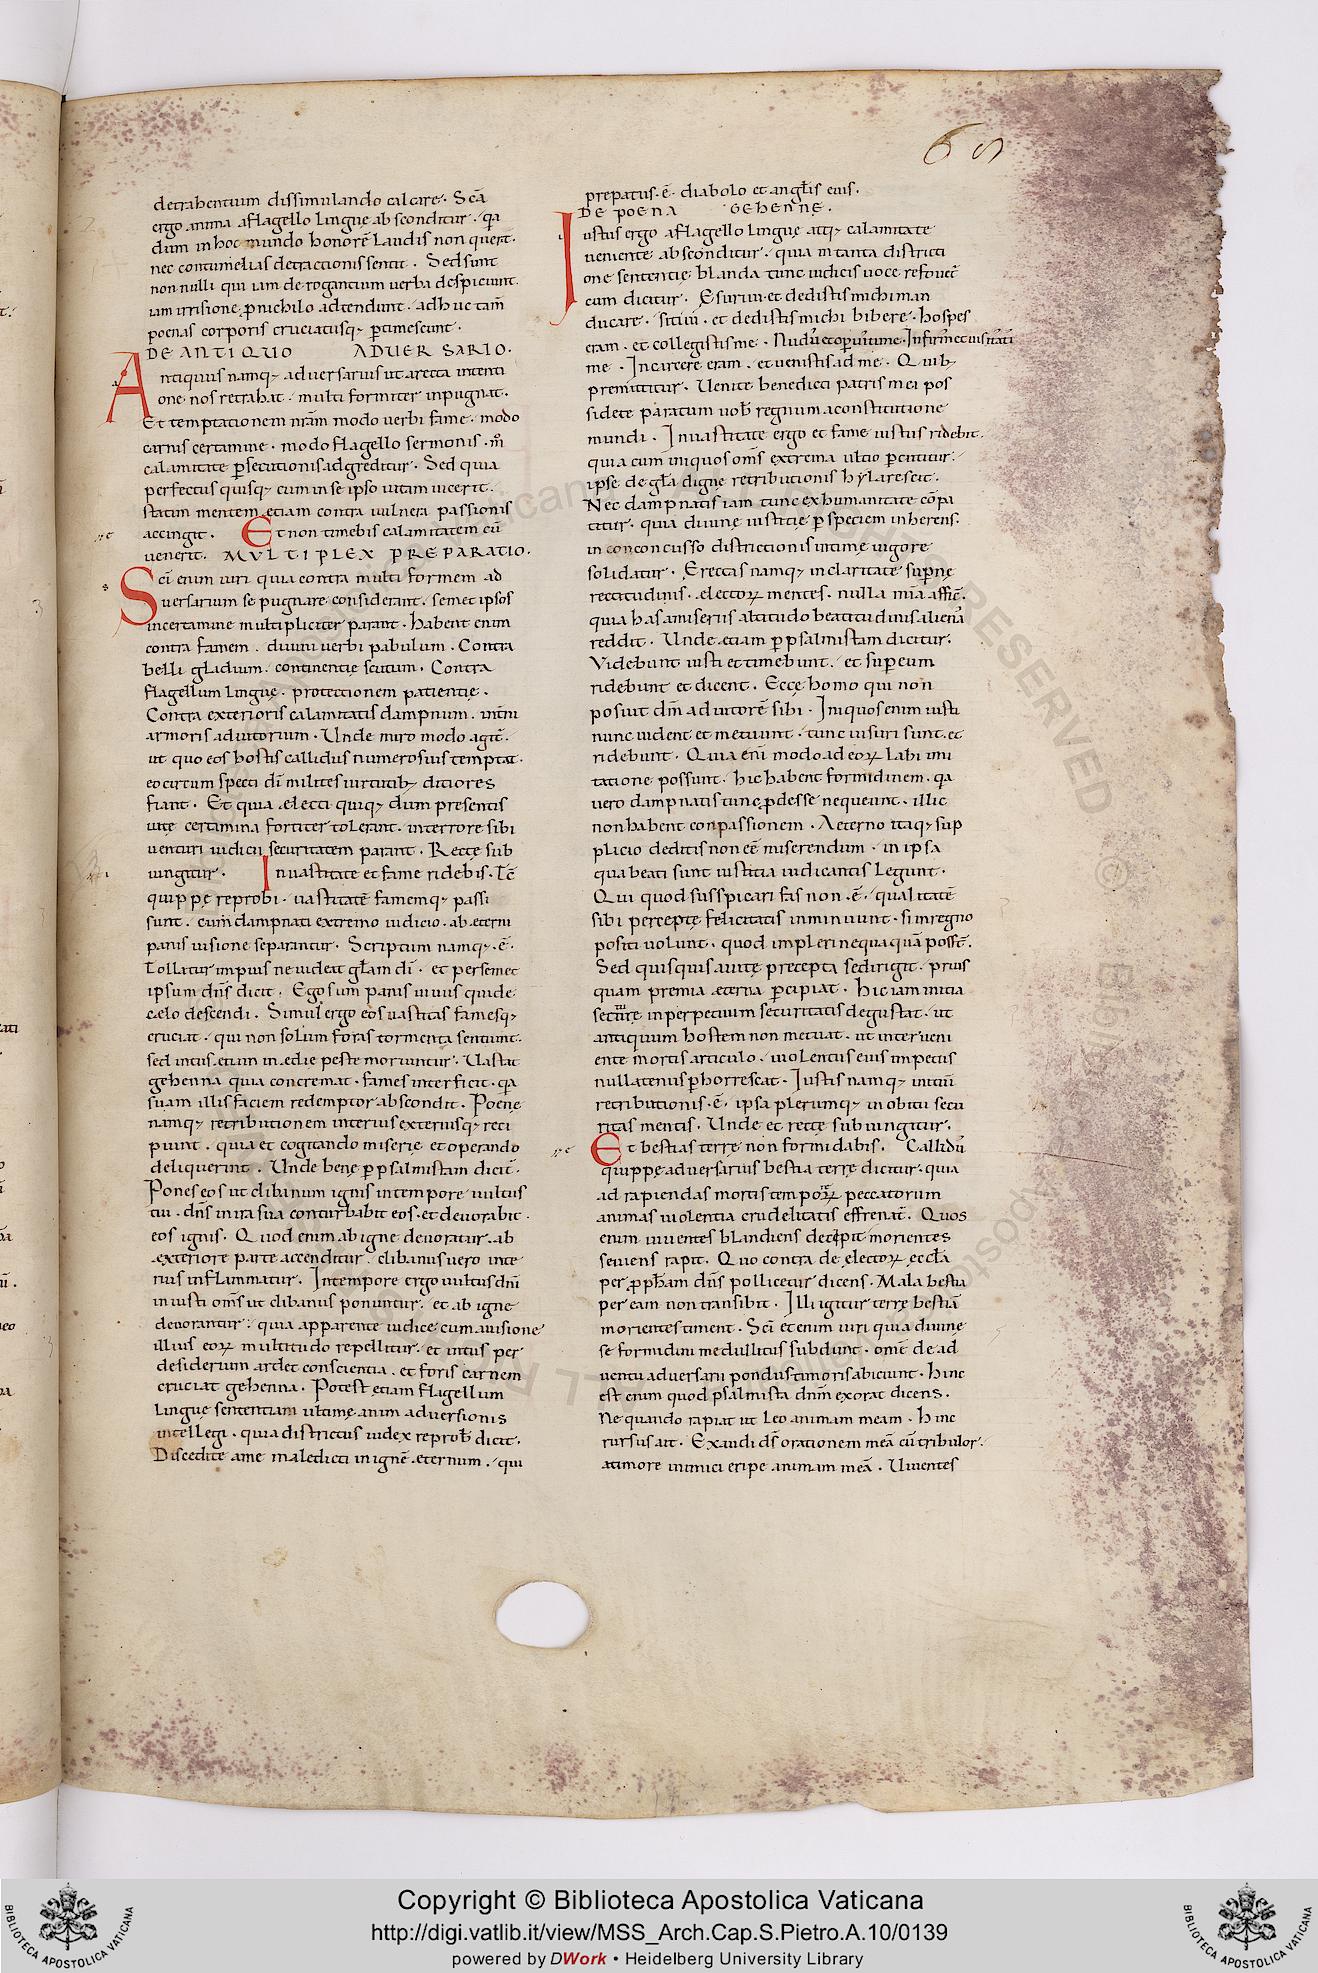 65
detrahentium dissimulando calcare. Scā
ergo anima a flagello linguę absconditur. qa
dum in hoc mundo honorē laudis non querit.
nec contumelias detractionis sentit. Sed sunt
non nulli qui iam derogantium uerba despiciunt.
iam irrisione p nichilo adtendunt. adhuc tam̄
poenas corporis cruciatusq; ptimescunt.
DE ANTIQUO ADUERSARIO.
Antiquus namq; aduersarius ut a recta intenti
one nos retrahat. multiformiter inpugnat.
Et temptationem nrām modo uerbi fame. modo
carnis certamine. modo flagello sermonis. m̊
calamitate psecutionis adgreditur. Sed quia
perfectus quisq; cum in se ipso uitam uicerit.
statim mentem etiam contra uulnera passionis
accingit. Et non timebis calamitatem cū
uenerit. MULTIPLEX PREPARATIO.
Sc̄i enim uiri quia contra multiformem ad
uersarium se pugnare considerant. semet ipsos
in certamine multipliciter parant. habent enim
contra famem. diuini uerbi pabulum. Contra
belli gladium. continentię scutum. Contra
flagellum linguę. protectionem patientię.
Contra exterioris calamitatis dampnum. int̄ni
amoris adiutorium. Unde miro modo agit̄.
ut quo eos hostis callidus numerosius temptat.
eo circumspecti dī milites uirtutib; ditiores
fiant. Et quia electi quiq; dum presentis
uitę certamina fortiter tolerant. in terrore sibi
uenturi iudicii securitatem parant. Recte sub
iungitur. In uastitate et fame ridebis. Tc̄
quippe reprobi. uastitatē famemq; passi
sunt. cum dampnati extremo iudicio. ab ęterni
panis uisione separantur. Scriptum namq;. ē.
Tollatur impius ne uideat glām dī. et per semet
ipsum dn̄s dicit. Ego sum panis uiuus qui de
cęlo descendi. Simul ergo eos uastitas famesq;
cruciat. qui non solum foras tormenta sentiunt.
sed intus etiam inedię peste moriuntur. Uastat
gehenna quia concremat. fames interficit. qa
suam illis faciem redemptor abscondit. Poenę
namq; retributionem interius exteriusq; reci
piunt. quia et cogitando misere et operando
deliquerint. Unde bene p psalmistam dicit̄.
Pones eos ut clibanum ignis in tempore uultus
tui. dn̄s in ira sua conturbabit eos. et deuorabit
eos ignis. Quod enim ab igne deuoratur. ab
exteriore parte accenditur. clibanus uero inte
rius inflammatur. In tempore ergo uultus dn̄i
iniusti oms̄ ut clibanus ponuntur. et ab igne
deuorantur. quia apparente iudice cum a uisione
illius eoꝝ multitudo repellitur. et intus per
desiderium ardet conscientia. et foris carnem
cruciat gehenna. Potest etiam flagellum
linguę sententiam ultimę animaduersionis
intellegi. quia districtus iudex reprob̄ dicit.
Discedite a me maledicti in ignē ęternum. qui
prepatus. ē. diabolo et angl̄is eius.
DE POENA GEHENNE.
Iustus ergo a flagello linguę atq; calamitate
ueniente absconditur. quia in tanta districti
one sententię. blanda tunc iudicis uoce refouet̄
cum dicitur. Esuriui et dedistis michi man
ducare. sitiui. et dedistis michi bibere. hospes
eram. et collegistis me. Nudus et operuistis me. Infirm̄ et uisitasti
me. In carcere eram. et uenistis ad me. Quib;
premittitur. Uenite benedicti patris mei pos
sidete paratum uob̄ regnum a constitutione
mundi. In uastitate ergo et fame iustus ridebit.
quia cum iniquos oms̄ extrema ultio pcutitur.
ipse de glā dignę retributionis hylarescit.
Nec dampnatis iam tunc ex humanitate cōpa
titur. quia diuinę iustitię p speciem inherens.
in conconcusso districtionis intimę uigore
solidatur. Erectas namq; in claritate supnę
rectitudinis. electoꝝ mentes. nulla mīa affic̄.
quia has a miseriis altitudo beatitudinis aliena
reddit. Unde etiam p psalmistam dicitur.
Videbunt iusti et timebunt. et sup eum
ridebunt et dicent. Ecce homo qui non
posuit dm̄ adiutorē sibi. Iniquos enim iusti
nunc uident et metuunt. tunc uisuri sunt. et
ridebunt. Quia eni modo ad eoꝝ labi imi
tatione possunt. hic habent formidinem. qa
uero dampnatis tunc pdesse nequeunt. illic
non habent conpassionem. Aeterno itaq; sup
plicio deditis non eē miserendum. in ipsa
qua beati sunt iustitia iudicantis legunt.
Qui quod suspicari fas non. ē. qualitatē
sibi perceptę felicitatis inminuunt. si in regno
positi uolunt. quod impleri nequaquā posst̄.
Sed quisquis a uitę precepta se dirigit. prius
quam premia ęterna pcipiat. hic iam initia
secuturę in perpetuum securitatis degustat. ut
antiquum hostem non metuat. ut interueni
ente mortis articulo. uiolentus eius impetus
nullatenus phorrescat. Iustis namq; initiū
retributionis. ē. ipsa plerumq; in obitu secu
ritas mentis. Unde et recte subiungitur.
Et bestias terrę non formidabis. Callidus
quippe aduersarius bestia terrę dicitur. quia
ad rapiendas mortis tempore peccatorum
animas uiolentia crudelitatis effrenat̄. Quos
enim uiuentes blandiens decepit morientes
seuiens rapit. Quo contra de electoꝝ eccl̄a
per pph̄am dn̄s pollicetur dicens. Mala bestia
per eam non transibit. Illi igitur terrę bestiā
morientes timent. Sc̄i etenim uiri quia diuine
se formidini medullitus subdunt. omē de ad
uentu aduersarii pondus timoris abiciunt. hinc
est enim quod psalmista dnm̄ exorat dicens.
Ne quando rapiat ut leo animam meam. hinc
rursus ait. Exaudi ds̄ orationem meā cū tribulor.
a timore inimici eripe animam meā. Uiuentes
Copyright © Biblioteca Apostolica Vaticana
http://digi.vatlib.it/view/MSS_Arch.Cap.S.Pietro.A.10/0139
powered by DWork • Heidelberg University Library
BIBLIOTECA APOSTOLICA VATICANA
BIBLIOTECA APOSTOLICA VATICANA